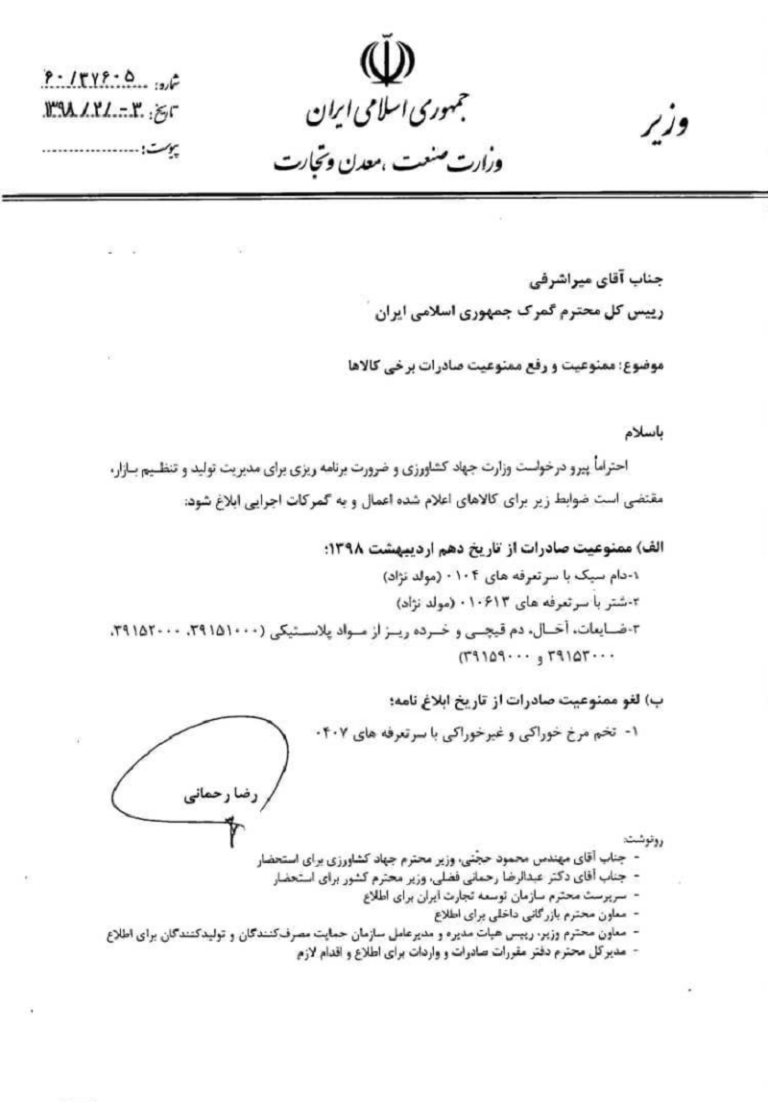 جمهوری اسلامی ایران
وزارت صنعت ،معدن وتجارت
وزیر
شماره: ۶۰/۳۷۶۰۵
تاریخ: ۱۳۹۸/۲/۰۳
پیوست:
جناب آقای میراشرفی
رییس کل محترم گمرک جمهوری اسلامی ایران
موضوع: ممنوعیت و رفع ممنوعیت صادرات برخی کالاها
باسلام
احتراماً پیرو درخواست وزارت جهاد کشاورزی و ضرورت برنامه ریزی برای مدیریت تولید و تنظیم بازار،
مقتضی است ضوابط زیر برای کالاهای اعلام شده اعمال و به گمرکات اجرایی ابلاغ شود:
الف) ممنوعیت صادرات از تاریخ دهم اردیبهشت ۱۳۹۸؛
۱-دام سبک با سرتعرفه های ۰۱۰۴ (مولد نژاد)
۲-شتر با سرتعرفه های ۰۱۰۶۱۳ (مولد نژاد)
۳-ضایعات، آخال، دم قیچی و خرده ریز از مواد پلاستیکی (۳۹۱۵۱۰۰۰، ۳۹۱۵۲۰۰۰،
۳۹۱۵۳۰۰۰ و ۳۹۱۵۹۰۰۰)
ب) لغو ممنوعیت صادرات از تاریخ ابلاغ نامه؛
۱- تخم مرخ خوراکی و غیرخوراکی با سرتعرفه های ۰۴۰۷
رضا رحمانی
رونوشت:
- جناب آقای مهندس محمود حجتی، وزیر محترم جهاد کشاورزی برای استحضار
- جناب آقای دکتر عبدالرضا رحمانی فضلی، وزیر محترم کشور برای استحضار
- سرپرست محترم سازمان توسعه تجارت ایران برای اطلاع
- معاون محترم بازرگانی داخلی برای اطلاع
- معاون محترم وزیر، رییس هیات مدیره و مدیرعامل سازمان حمایت مصرف‌کنندگان و تولیدکنندگان برای اطلاع
- مدیرکل محترم دفتر مقررات صادرات و واردات برای اطلاع و اقدام لازم